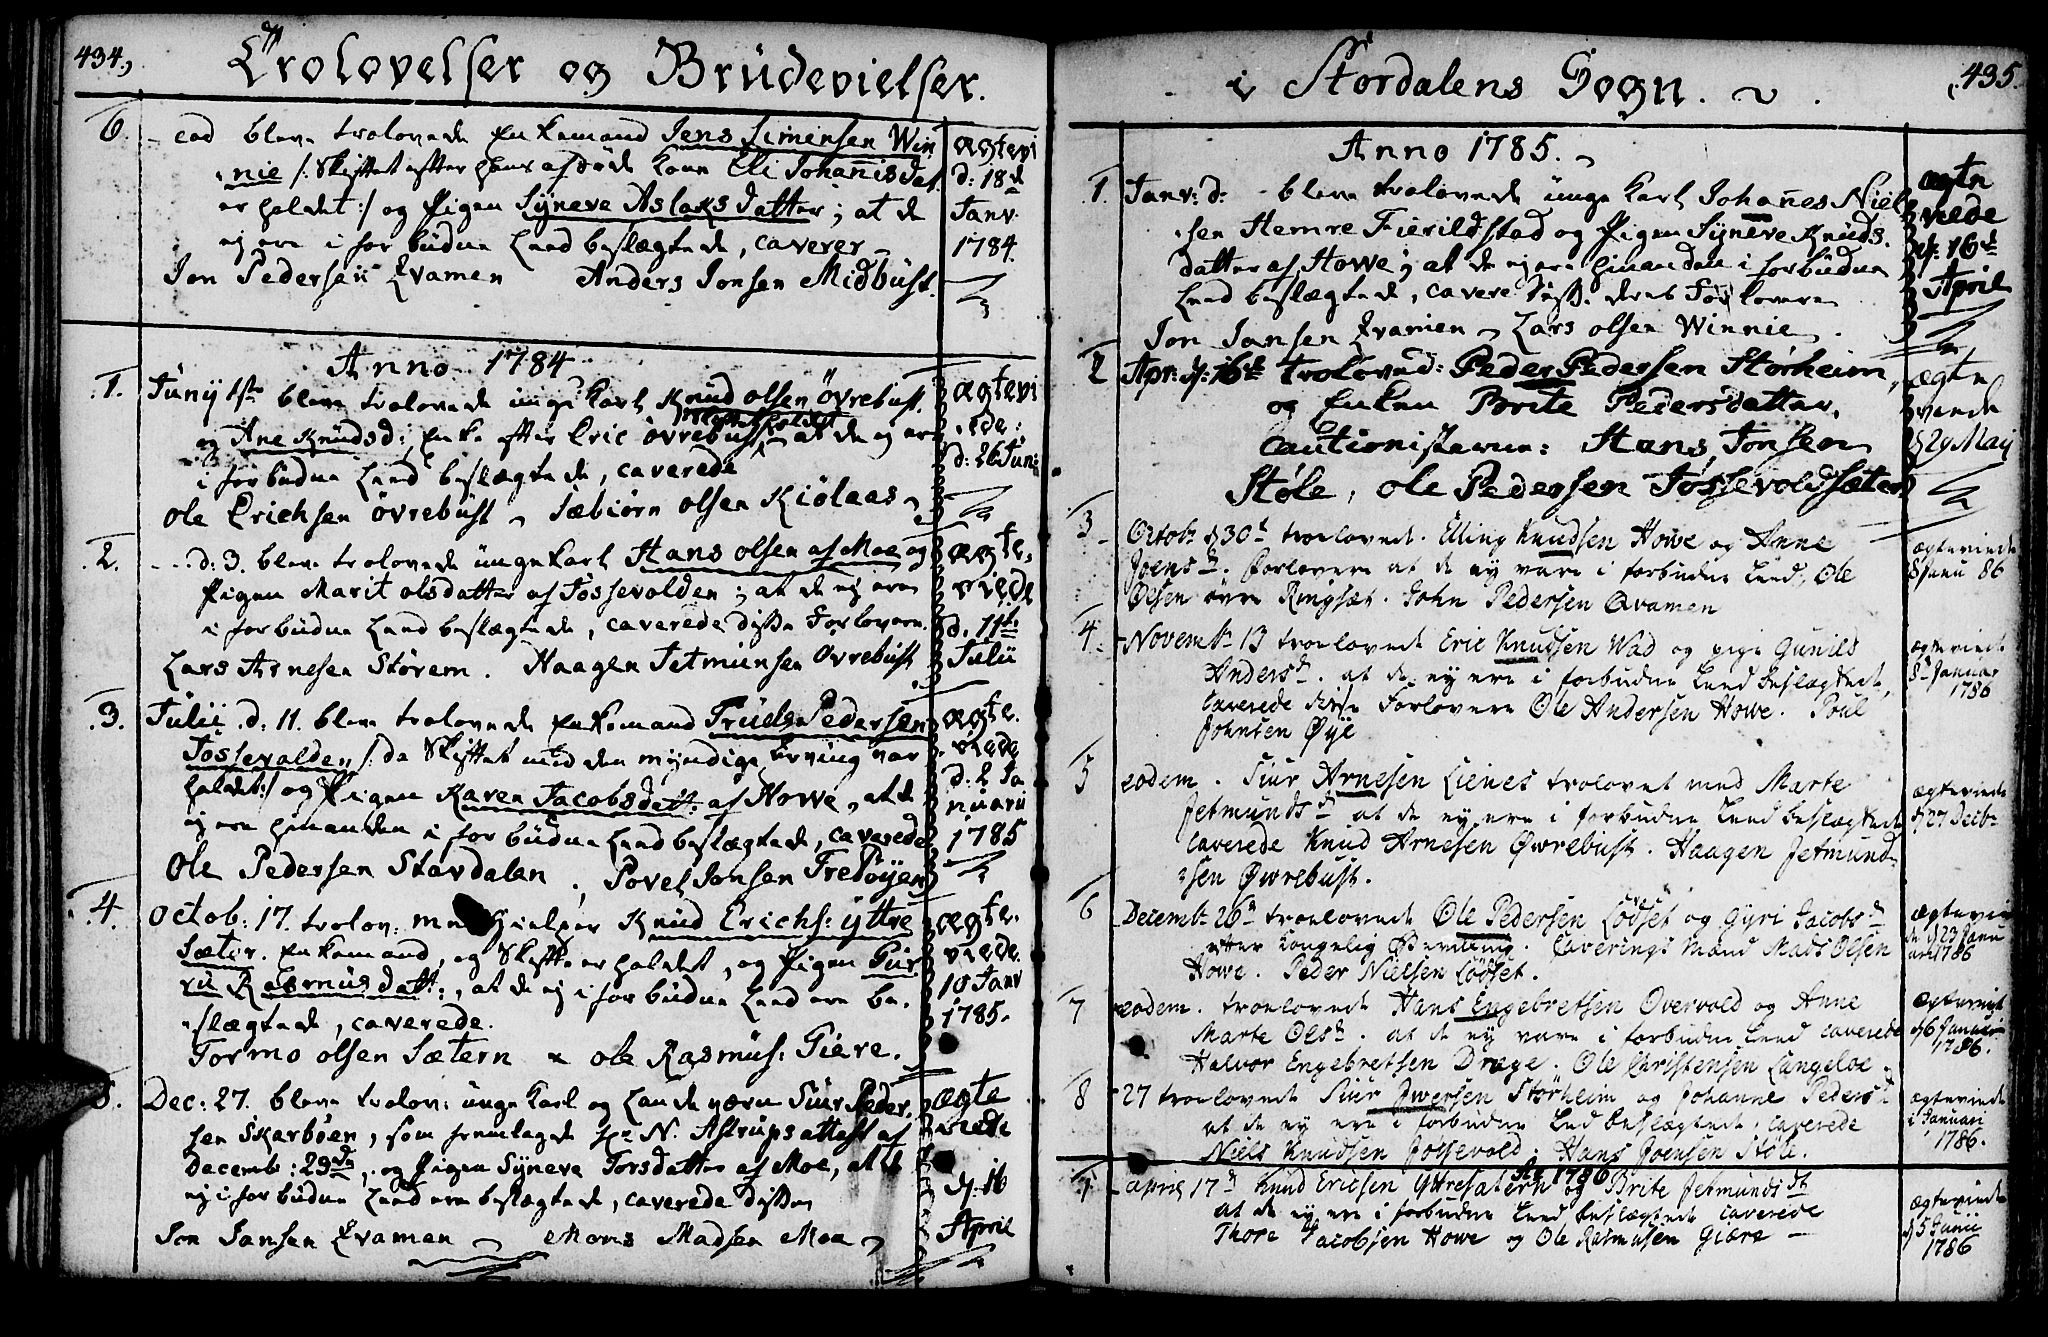 434,
Trolovelser og Brüdevielser.
6. - eod bleve trolovede Enkemand Jens Simensen Win
nie /: Skiftet efter hans afdøde Kone Eli Johannisdat.
er holdet :/ og Pigen Syneve Aslaksdatter; at de
ej ere i forbudne Leed beslægtede, caverer
Jon Pedersen Qvamen Anders Jonsen Midbüst.
ægtevi
d: 18de
Janv:
1784.
Anno 1784
1. Junij 1ste bleve trolovede unge Karl Knud olsen övrebust.
og Ane Knudsd: Enke efter Eric övrebust, at de ej ere
i forbudne Leed beslægtede, caverede
Ole Erichsen övrebust - Sæbiörn olsen Kiölaas
ægtevi
ede:
d. 26 Juni
2. ... d. 3. bleve trolovede ungekarl Hans olsen af Moe og
Pigen Marit olsdatter af Fossevolden; at de ej ere
i forbudne Leed beslægtede, caverede disse Forlovere.
Lars Arnesen Storem. Haagen Jetmundsen Övrebust
ægte.
viede
d. 11te
Julii
3. Julii d. 11. bleve trolovede Enkemand Truels Pedersen
Fossevolden, /: da Skiftet med den myndige Arving var
holdet :/ og Pigen Karen Jacobsdatt: af Howe, at de
ej ere hinanden i forbudne Leed beslægtede, caverede
Ole Pedersen Stavdalen, Povel Jonsen Fredöyen
ægte.
viede
d. 2 Ja
nuarii
1785
4. Octob: 17. trolov: Knud Erichs: yttre
Sæter. Enkemand, og Skifte er holdet, og Pigen Gui
ru Rasmusdatt:, at de ej i forbudne Leed ere be.
slægtede, caverede.
Tormo olsen Sætern x ole Rasmus: Giere.
ægte.
viede
10 Janv
1785.
5. Dec: 27. bleve trolov: unge Karl og Siur Peder.
sen Skarböen, som fremlagde Hr N. Astrups attest af
Decemb: 23de, og Pigen Syneve Torsdatter af Moe, at de
ej i forbudne Leed ere beslægtede, caverede disse
Jon Jansen Qvamen - Mons Madsen Moe -
ægte
viede
d. 16
April
i Stordalens Sogn.
435.
Anno 1785.
1. Janv: d: - bleve trolovede unge Karl Johannes Niel
sen Hemre Fierildstad og Pigen Syneve Knuds.
datter af Howe; at de ej ere hinanden i forbudne
Leed beslægtede, cavere deres Forlovere
Jon Jansen Qvamen, Lars olsen Winnie.
ægte
viede
d. 16de
April
2 Apr: d: 16de troloved: Peder Pedersen Storheim,
og Enken Brite Pedersdatter,
Cautionisterne: Hans Jonsen
Støle, ole Pedersen Fossevoldsæter
ægte
viede
d 29 Maij
3 - Octobr d 30te troelovede. Elling Knudsen Howe og Anne
Joensdr. Forlovere at de ey vare i forbudne Leed, Ole
Olsen övre Ringsæt. John Pedersen Qvamen
ægteviede
8 Janu 86
4 - Novembr 13 troelovede Eric Knudsen Wad og pige Gunild
Andersdr. at de ey ere i forbudne Leed beslægtede,
caverede disse Forlovere Ole Andersen Howe. Poul
Johnsen Øye
ægteviede
8de Januar
1786
5 eodem. Siur Arnesen Lienes trolovet med Marte
Jetmundsdr at de ey ere i forbudne Leed beslægtede
caverede Knud Arnesen Øwrebust. Haagen Jetmund
sen Øwrebust.
ægteviede
d 27 Decbr
6 Decembr 26de troelovede Ole Pedersen Lödset og Gyri Jacobsdr
efter kongelig Bevilling. Caverings Mænd Mads Olsen
Howe. Peder Nielsen Lödset.
ægtevie
de d 23 Janu
arii 1786
7 eodem. troelovede Hans Engebretsen Overvold og Anne
Marte Olsdr. at de ey vare i forbudne Leed caverede
Halvor Engebretsen Dræge. Ole Christensen Langeloe
ægteviet
d 6 Januar
1786.
8 - 27 troelovede Siur Iwersen Storheim og Johanne Pedersdr
at de ey ere i forbudne Leed beslægtede, caverede
Niels Knudsen Fossevold. Hans Joensen Støle.
ægteviede
i Januari
1786.
Ao 1786
1 - april 17de Knud Ericsen Yttresætern og Brite Jetmundsdr
at de ey ere i forbudne Leed beslægtede caverede
Thore Jacobsen Howe og Ole Rasmusen Giære -
ægteviede
d 5 Junii
1786